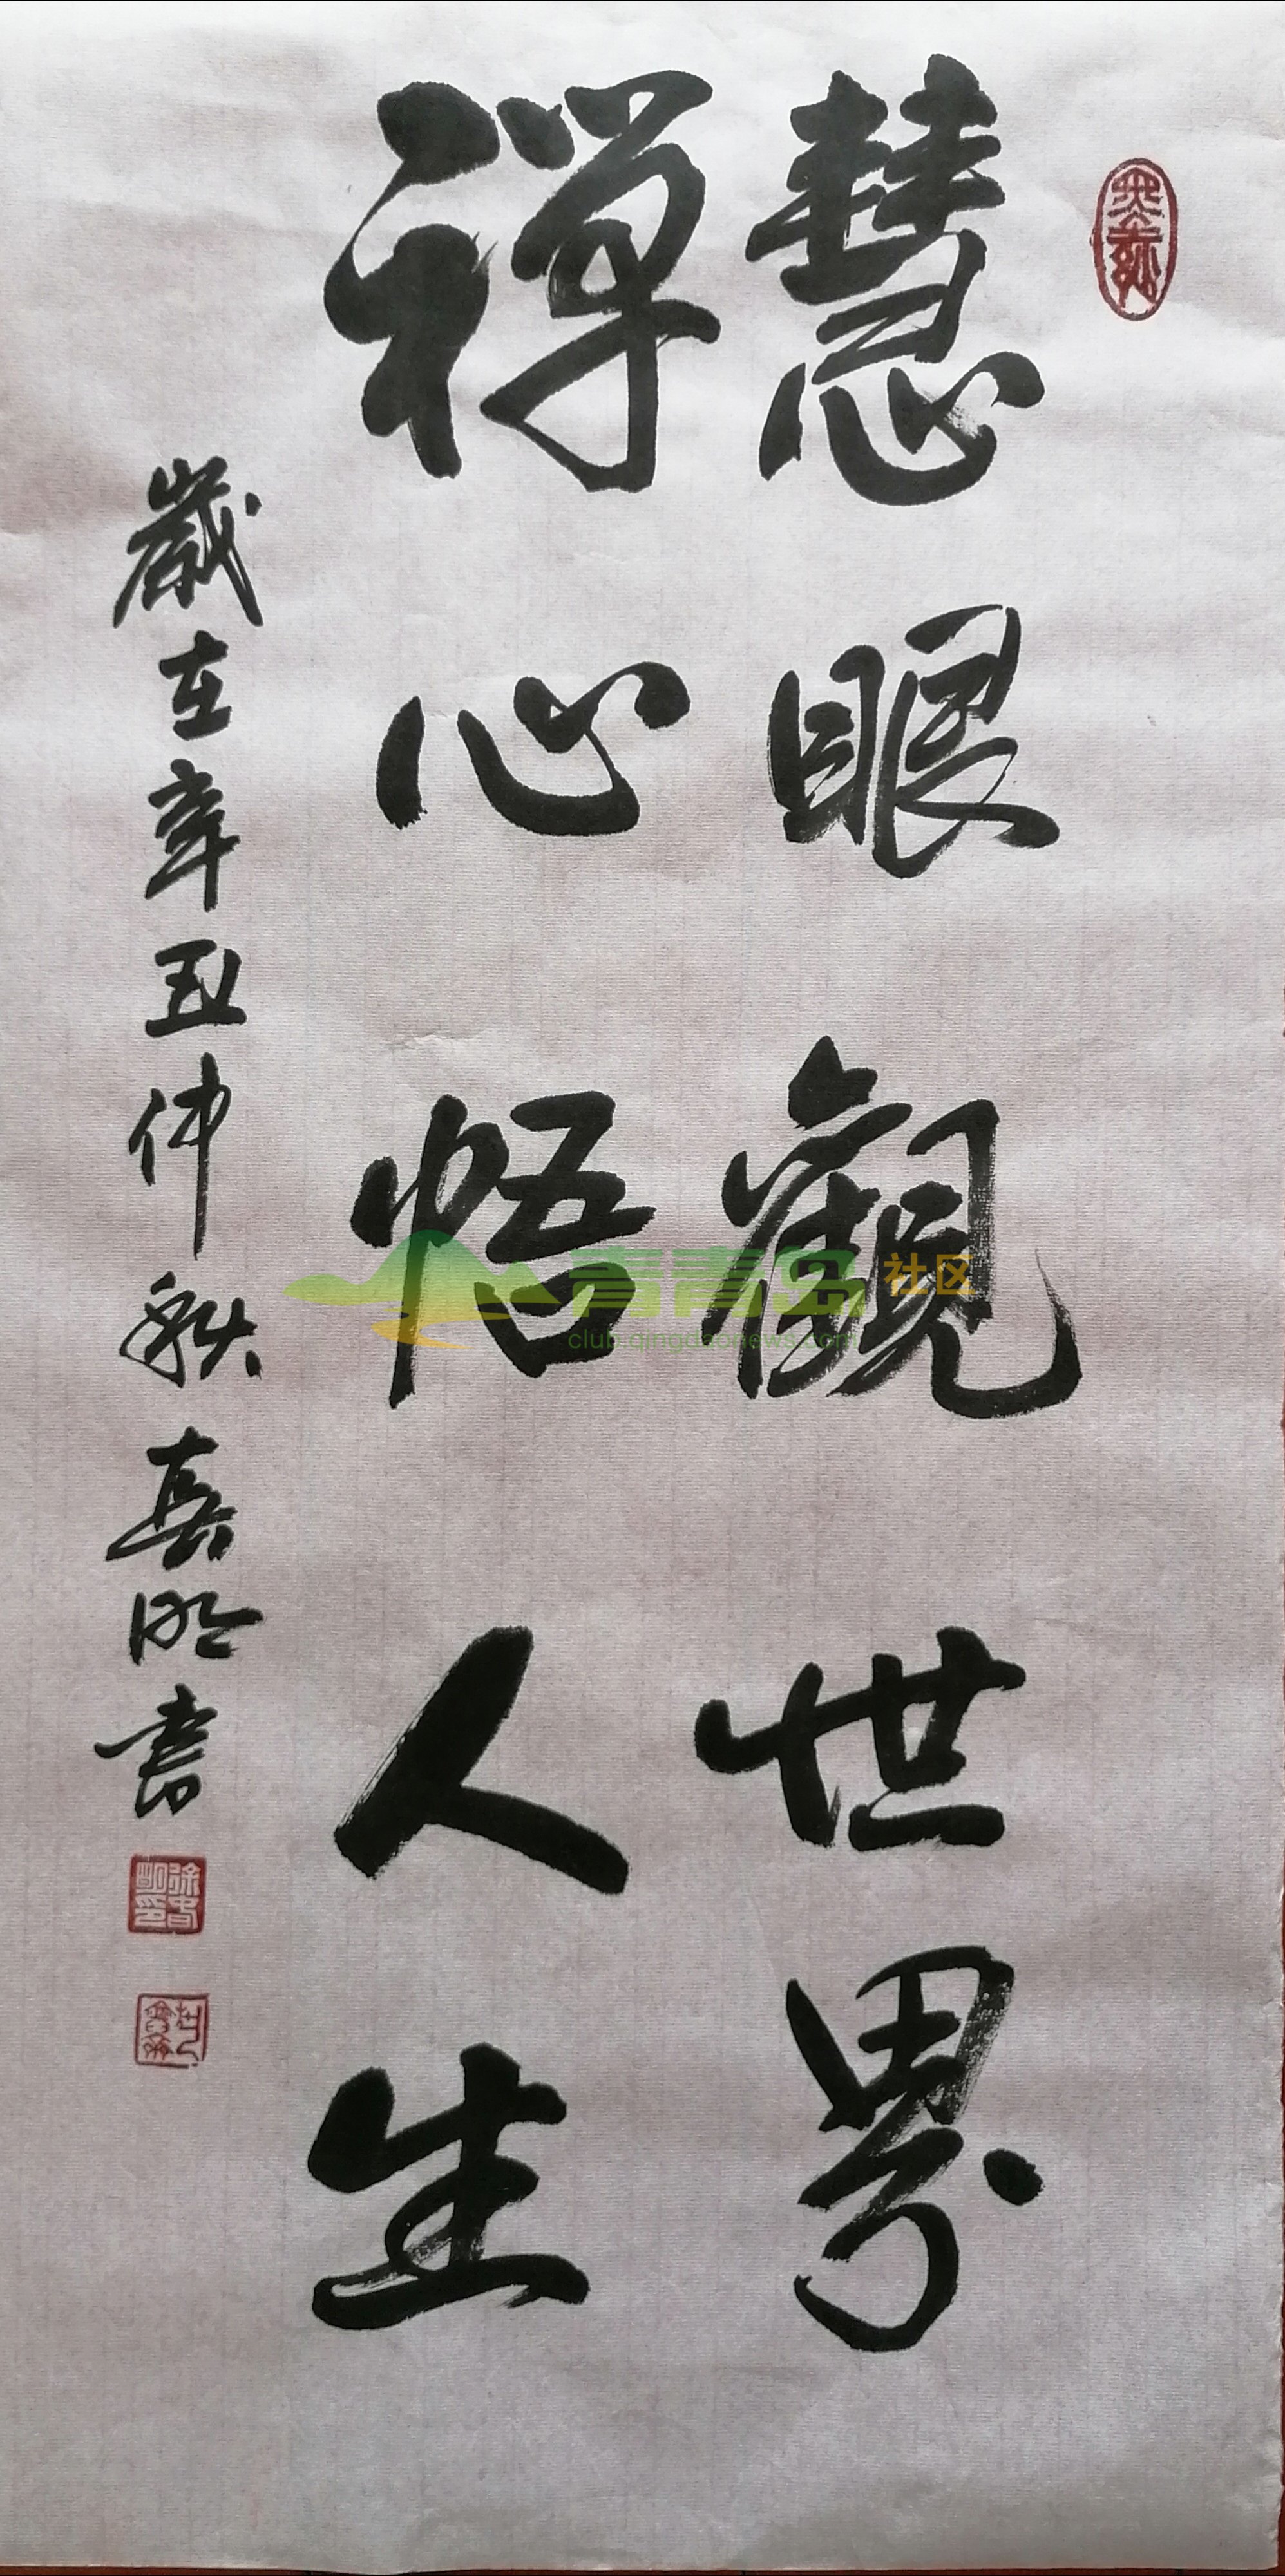 慧眼觀世界
禪心悟人生
歲在辛丑仲秋喜明書
青青岛社区
club.qingdaonews.com